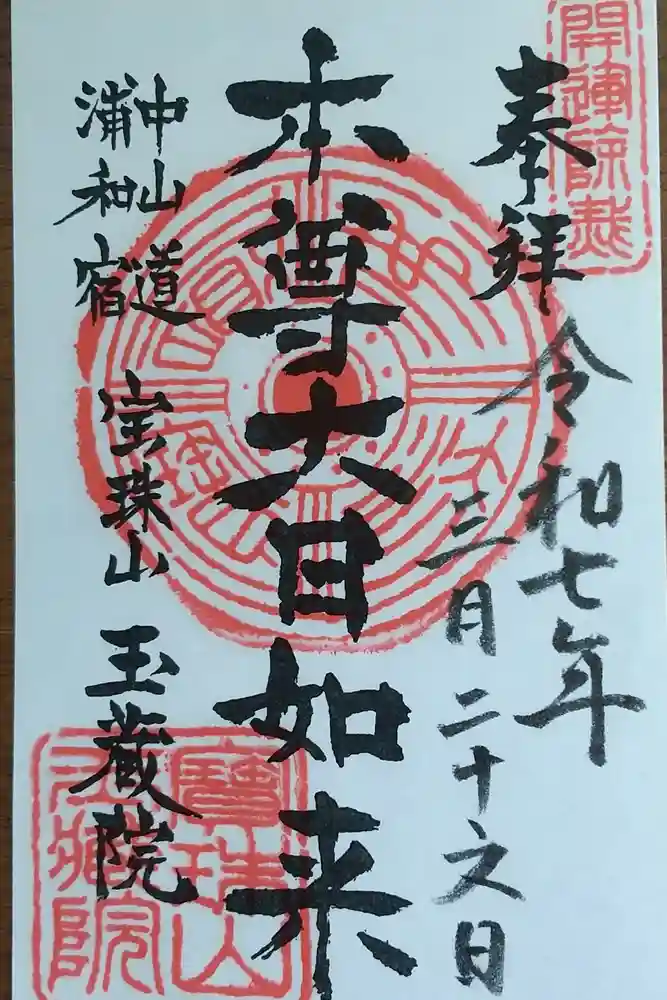 開運除災
奉拝
令和七年
三月二十六日
本尊大日如来
中山道
浦和宿
宝珠山 玉蔵院
寶珠山
玉藏院